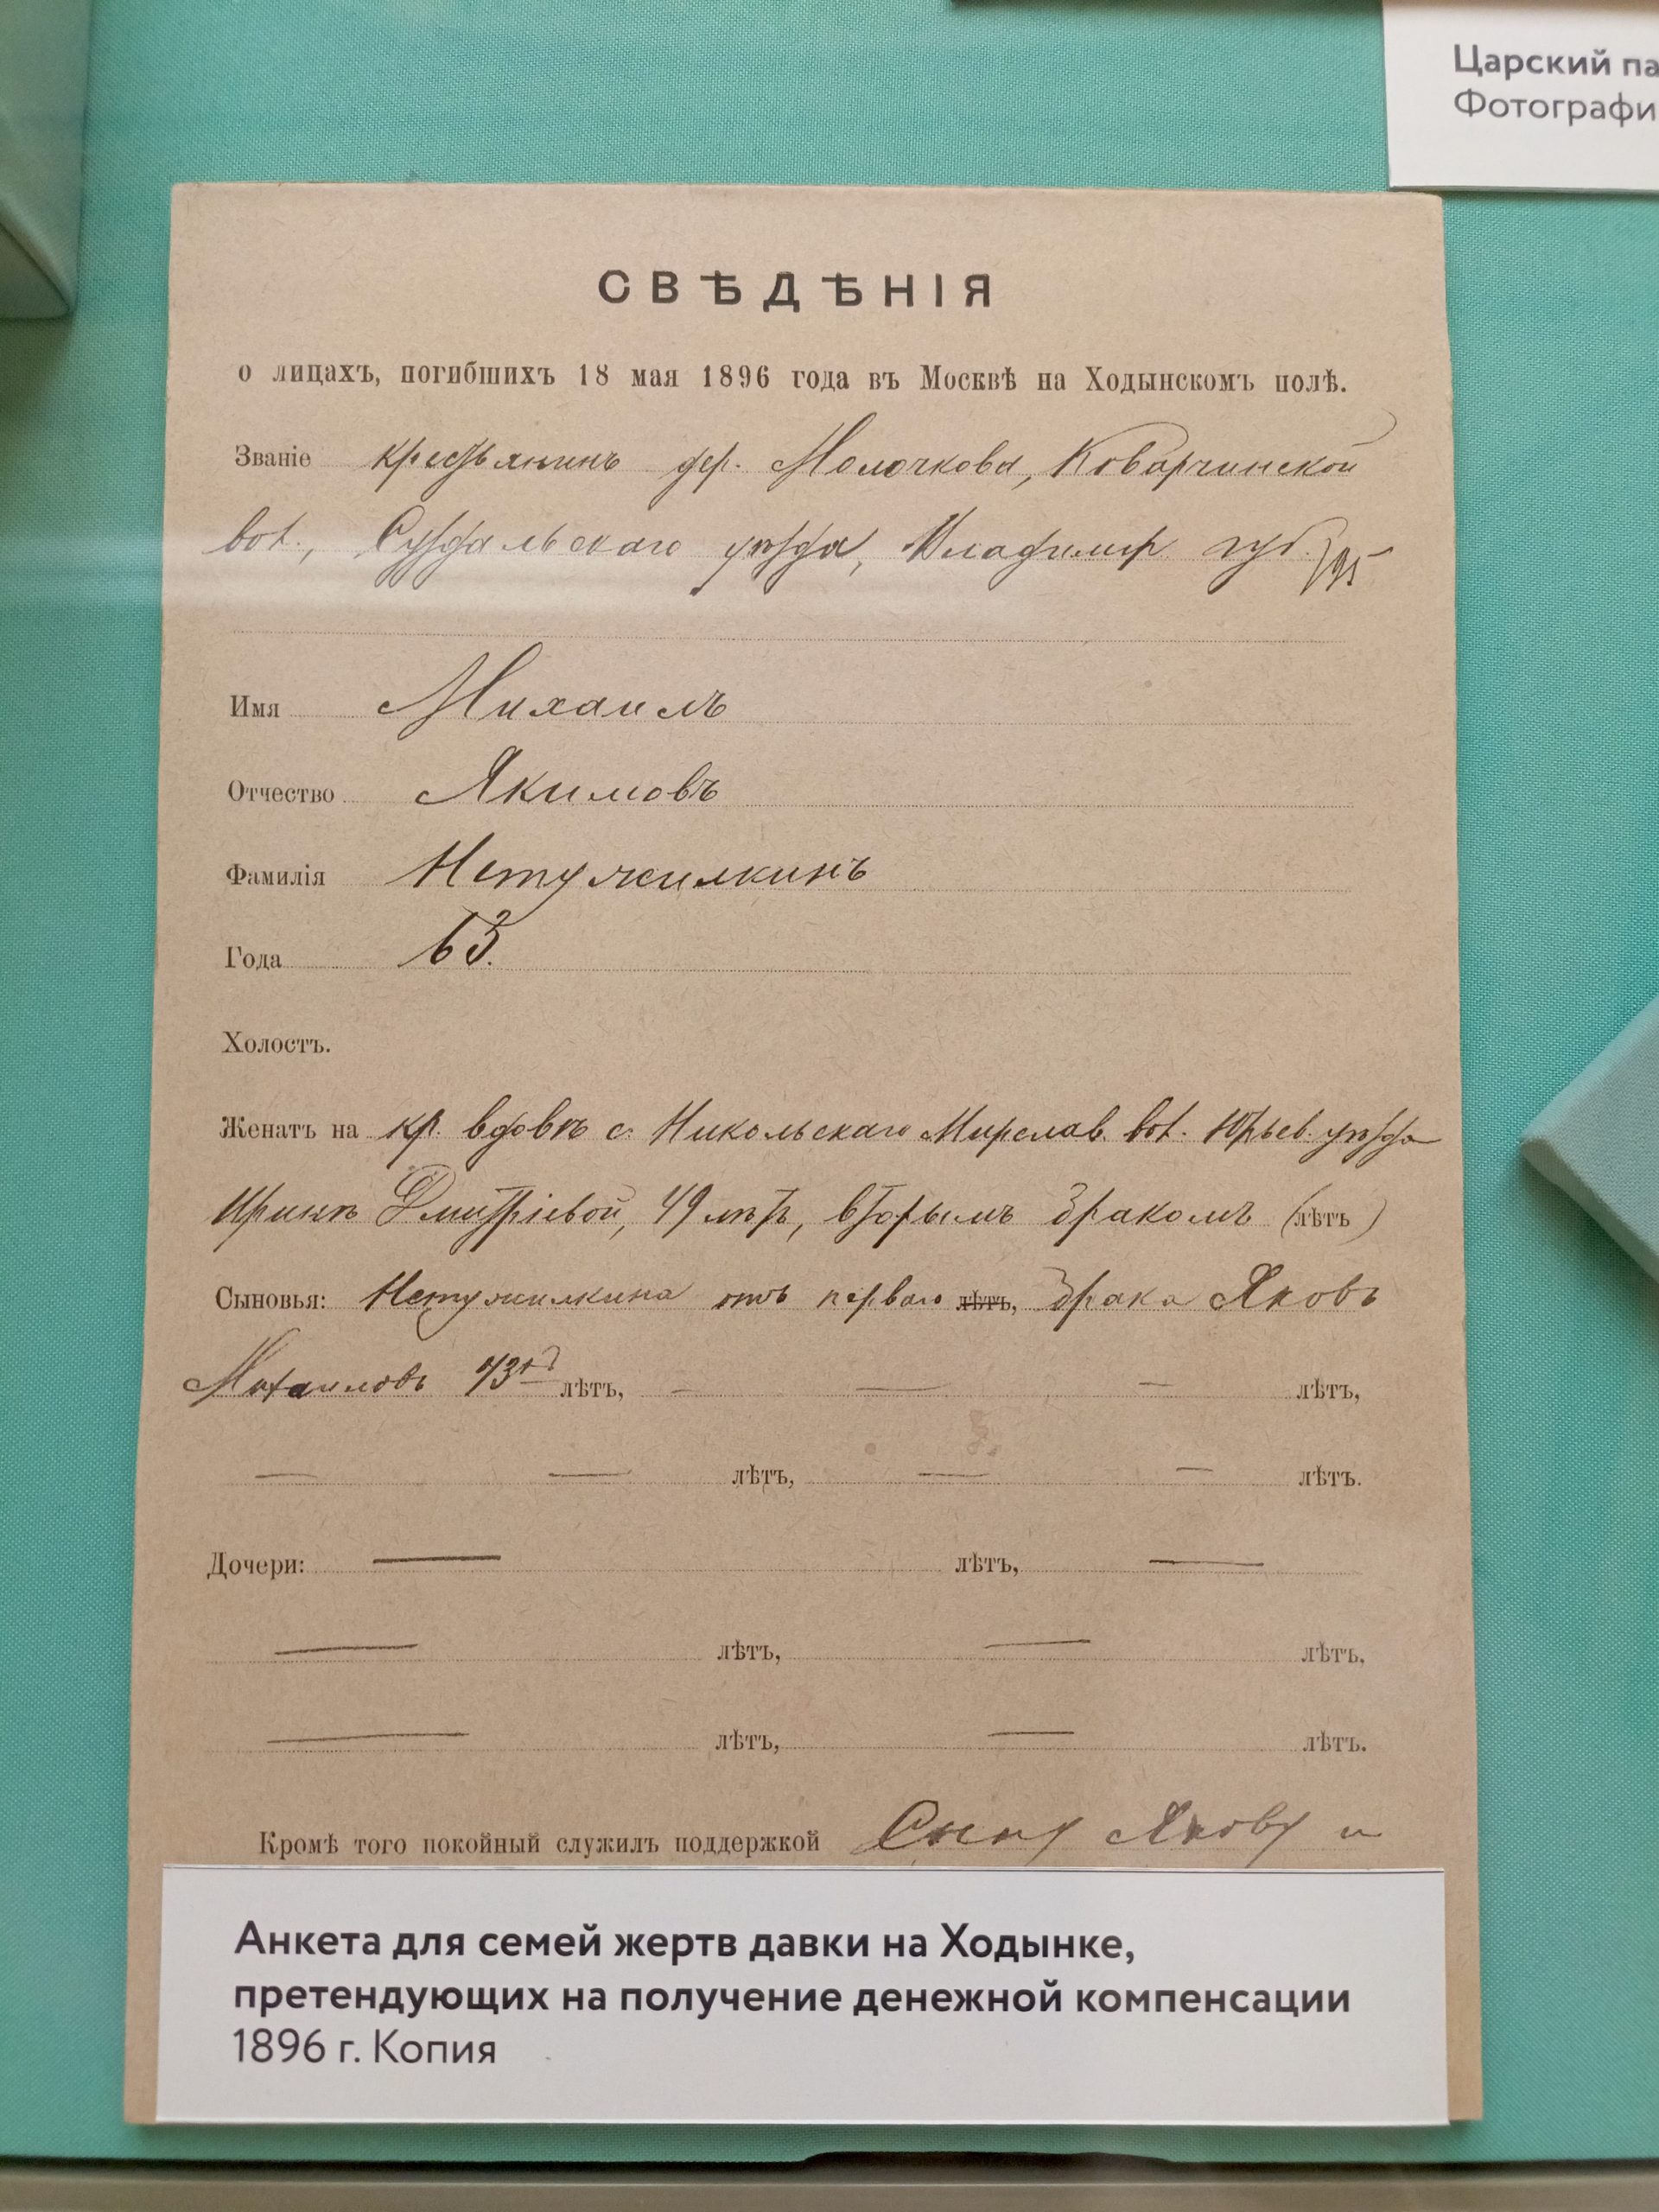 Царский па
Фотографи
СВѢДѢНІЯ
о лицахъ, погибшихъ 18 мая 1896 года въ Москвѣ на Ходынскомъ полѣ.
Званіе крестьянинъ дер. Молочкова, Коварчинской
вол., Суздальскаго уѣзда, Владимир губ.
Имя Михаилъ
Отчество Якимовъ
Фамилія Нетужилкинъ
Года 63.
Холостъ.
Женатъ на кр. вдовѣ с. Никольскаго Мирслав. вол. Юрьев. уѣзда
Иринѣ Дмитріевой, 49 лѣтъ, вторымъ бракомъ (лѣтъ)
Сыновья: Нетужилкина отъ перваго лѣтъ, брака Яковъ
Михаиловъ лѣтъ, — — — лѣтъ,
— — лѣтъ, — — лѣтъ.
Дочери: — лѣтъ, —
— лѣтъ, — лѣтъ,
— лѣтъ, — лѣтъ.
Кромѣ того покойный служилъ поддержкой Сыну Якову и
Анкета для семей жертв давки на Ходынке,
претендующих на получение денежной компенсации
1896 г. Копия